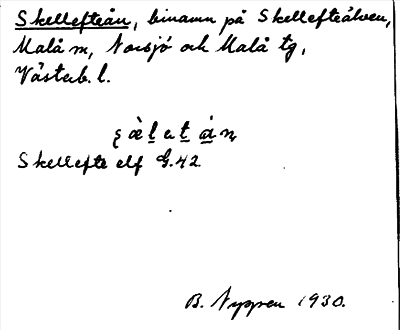 Skellefteån, binamn på Skellefteälven,
Malå m, Norsjö och Malå tg,
Västerb. l.
Skellefte elf G.42
B. Nyppen 1930.